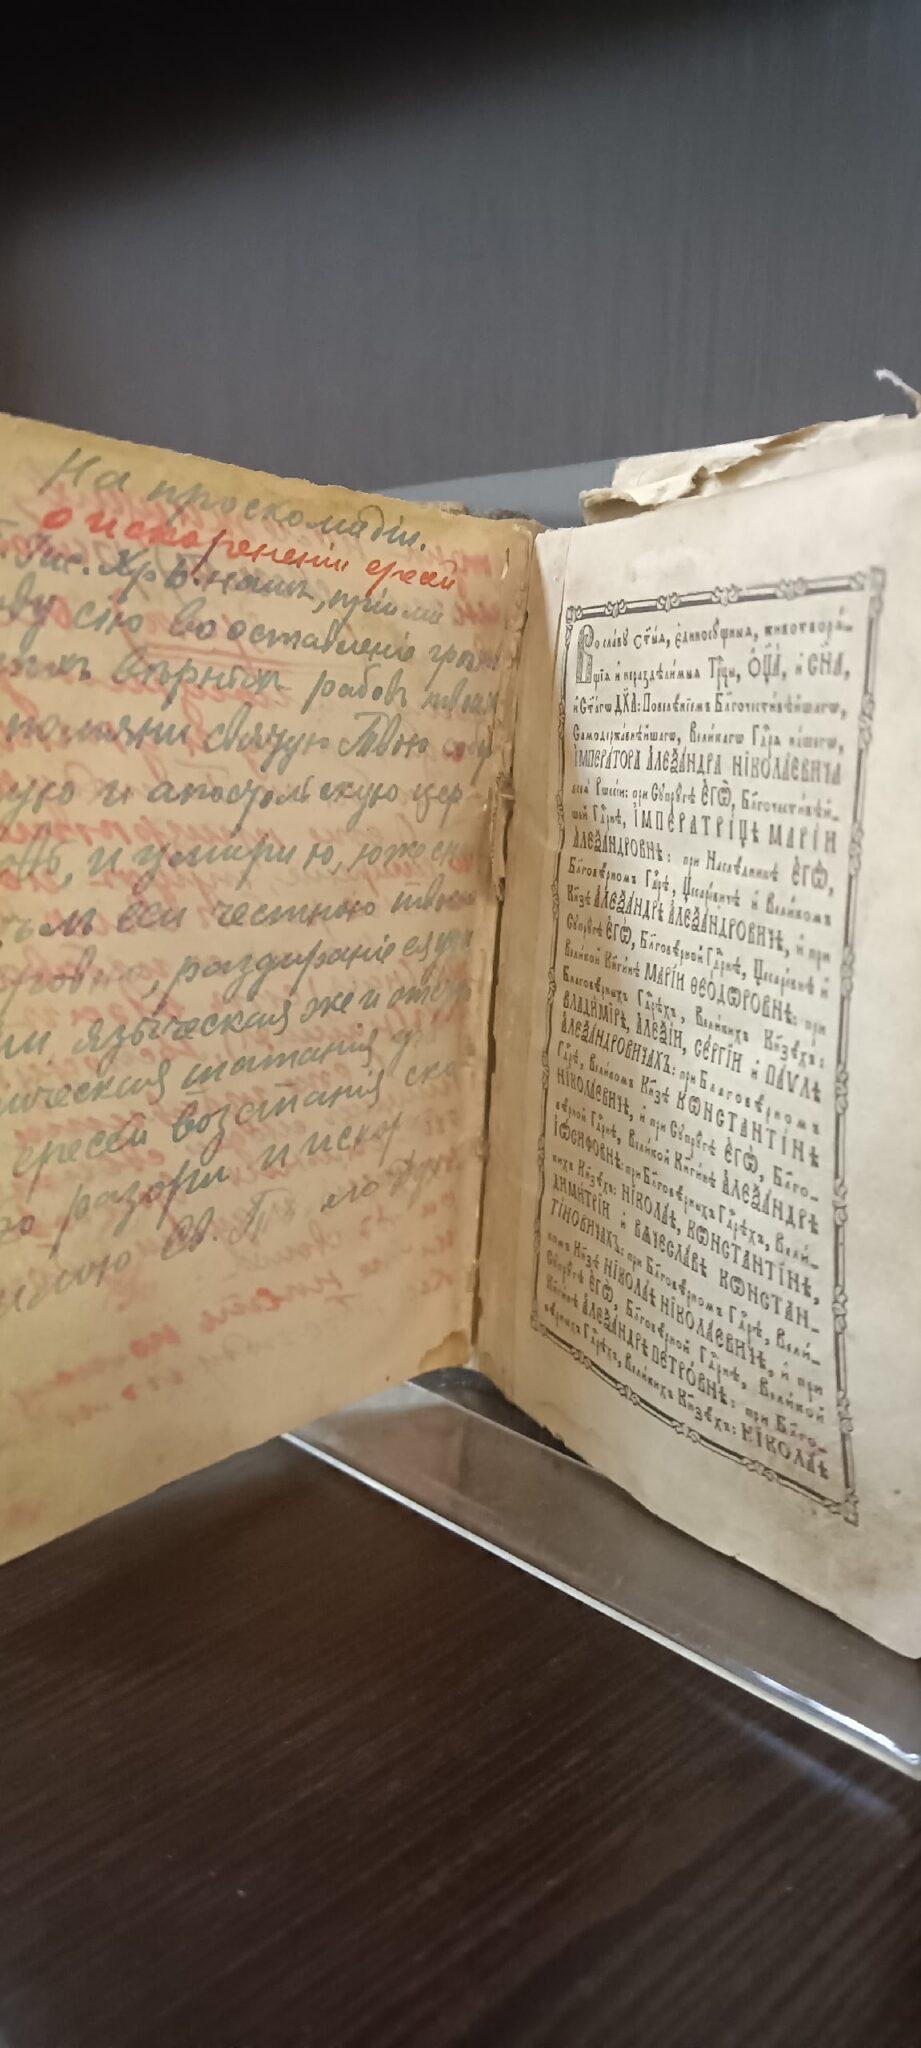 На проскомидіи.
о искорененіи ересей
Іис. Хр. Б. нашъ, пріими
сію во оставленіе
вѣрныхъ рабовъ
помяни святую Твою
и апостольскую цер-
и умири ю, юже
еси честною
раздираніе
языческая же и
шатанія
ересей возстанія
разори и
Св.
Во сла́вѹ ст҃ы́ѧ, є҆диносѹ́щныѧ, животворѧ́-
щїѧ и҆ нераздѣ́лимыѧ Трⷪ҇цы, Ѻ҆ц҃А̀, и҆ Сн҃А,
и҆ Ст҃а́гѡ ДХ҃А: Повелѣ́нїемъ Бл҃гочести́вѣйшагѡ,
Самодержа́внѣйшагѡ, Вели́кагѡ Гдⷭ҇рѧ на́шегѡ,
І҆МПЕРА́ТОРА А҆ЛЕѮА́НДРА НІКОЛА́ЕВИЧА
всеѧ̀ Рѡссі́и: при Сѹпрѹ́гѣ Є҆ГѠ̀, Бл҃гочести́вѣй-
шей Гдⷭ҇рнѣ, І҆МПЕРАТРИ́ЦѢ МАРІ́И
А҆ЛЕѮА́НДРОВНѢ: при Наслѣ́дникѣ Є҆ГѠ̀,
Бл҃говѣ́рномъ Гдⷭ҇рѣ, Цесаре́вичѣ и҆ Вели́комъ
Кнѧ́зѣ А҆ЛЕѮА́НДРѢ А҆ЛЕѮА́НДРОВИЧѢ, и҆ при
Сѹпрѹ́гѣ Є҆ГѠ̀, Бл҃говѣ́рной Гдⷭ҇рнѣ, Цесаре́внѣ и҆
Вели́кой Кнѧги́нѣ МАРІ́И ѲЕО́ДѠРОВНѢ: при
Бл҃говѣ́рныхъ Гдⷭ҇рѣхъ, Вели́кихъ Кнѧзѣ́хъ:
ВЛАДИ́МІРѢ, А҆ЛЕѮІ́И, СЕ́РГІИ и҆ ПА́ѴЛѢ
А҆ЛЕѮА́НДРОВИЧАХЪ: при Бл҃говѣ́рномъ
Гдⷭ҇рѣ, Вели́комъ Кнѧ́зѣ КѠНСТАНТІ́НѢ
НІКОЛА́ЕВИЧѢ, и҆ при Сѹпрѹ́гѣ Є҆ГѠ̀, Бл҃го-
вѣ́рной Гдⷭ҇рнѣ, Вели́кой Кнѧги́нѣ А҆ЛЕѮА́НДРѢ
І҆Ѡ́СИФОВНѢ: при Бл҃говѣ́рныхъ Гдⷭ҇рѣхъ, Вели́-
кихъ Кнѧзѣ́хъ: НІКОЛА́Ѣ, КѠНСТАНТІ́НѢ,
ДИМИ́ТРІИ и҆ ВѦЧЕСЛА́ВѢ КѠНСТАН-
ТІ́НОВИЧАХЪ: при Бл҃говѣ́рномъ Гдⷭ҇рѣ, Вели́-
комъ Кнѧ́зѣ НІКОЛА́Ѣ НІКОЛА́ЕВИЧѢ, и҆ при
Сѹпрѹ́гѣ Є҆ГѠ̀, Бл҃говѣ́рной Гдⷭ҇рнѣ, Вели́кой
Кнѧги́нѣ А҆ЛЕѮА́НДРѢ ПЕТРО́ВНѢ: при Бл҃го-
вѣ́рныхъ Гдⷭ҇рѣхъ, Вели́кихъ Кнѧзѣ́хъ: НІКОЛА́Ѣ